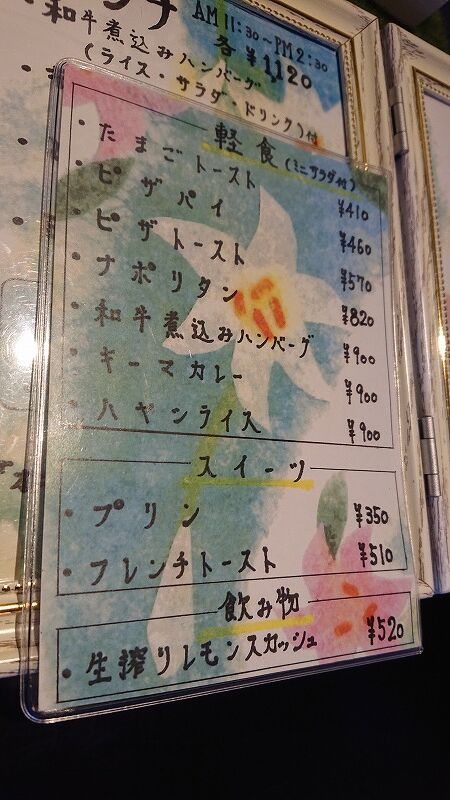 ンチ AM 11:30 ~ PM 2:30
・和牛煮込みハンバーグ 各¥1120
(ライス・サラダ・ドリンク)付
軽食(ミニサラダ付)
・たまごトースト ¥410
・ピザパイ ¥460
・ピザトースト ¥570
・ナポリタン ¥820
・和牛煮込みハンバーグ ¥900
・キーマカレー ¥900
・ハヤシライス ¥900
スイーツ
・プリン ¥350
・フレンチトースト ¥510
飲み物
・生搾りレモンスカッシュ ¥520